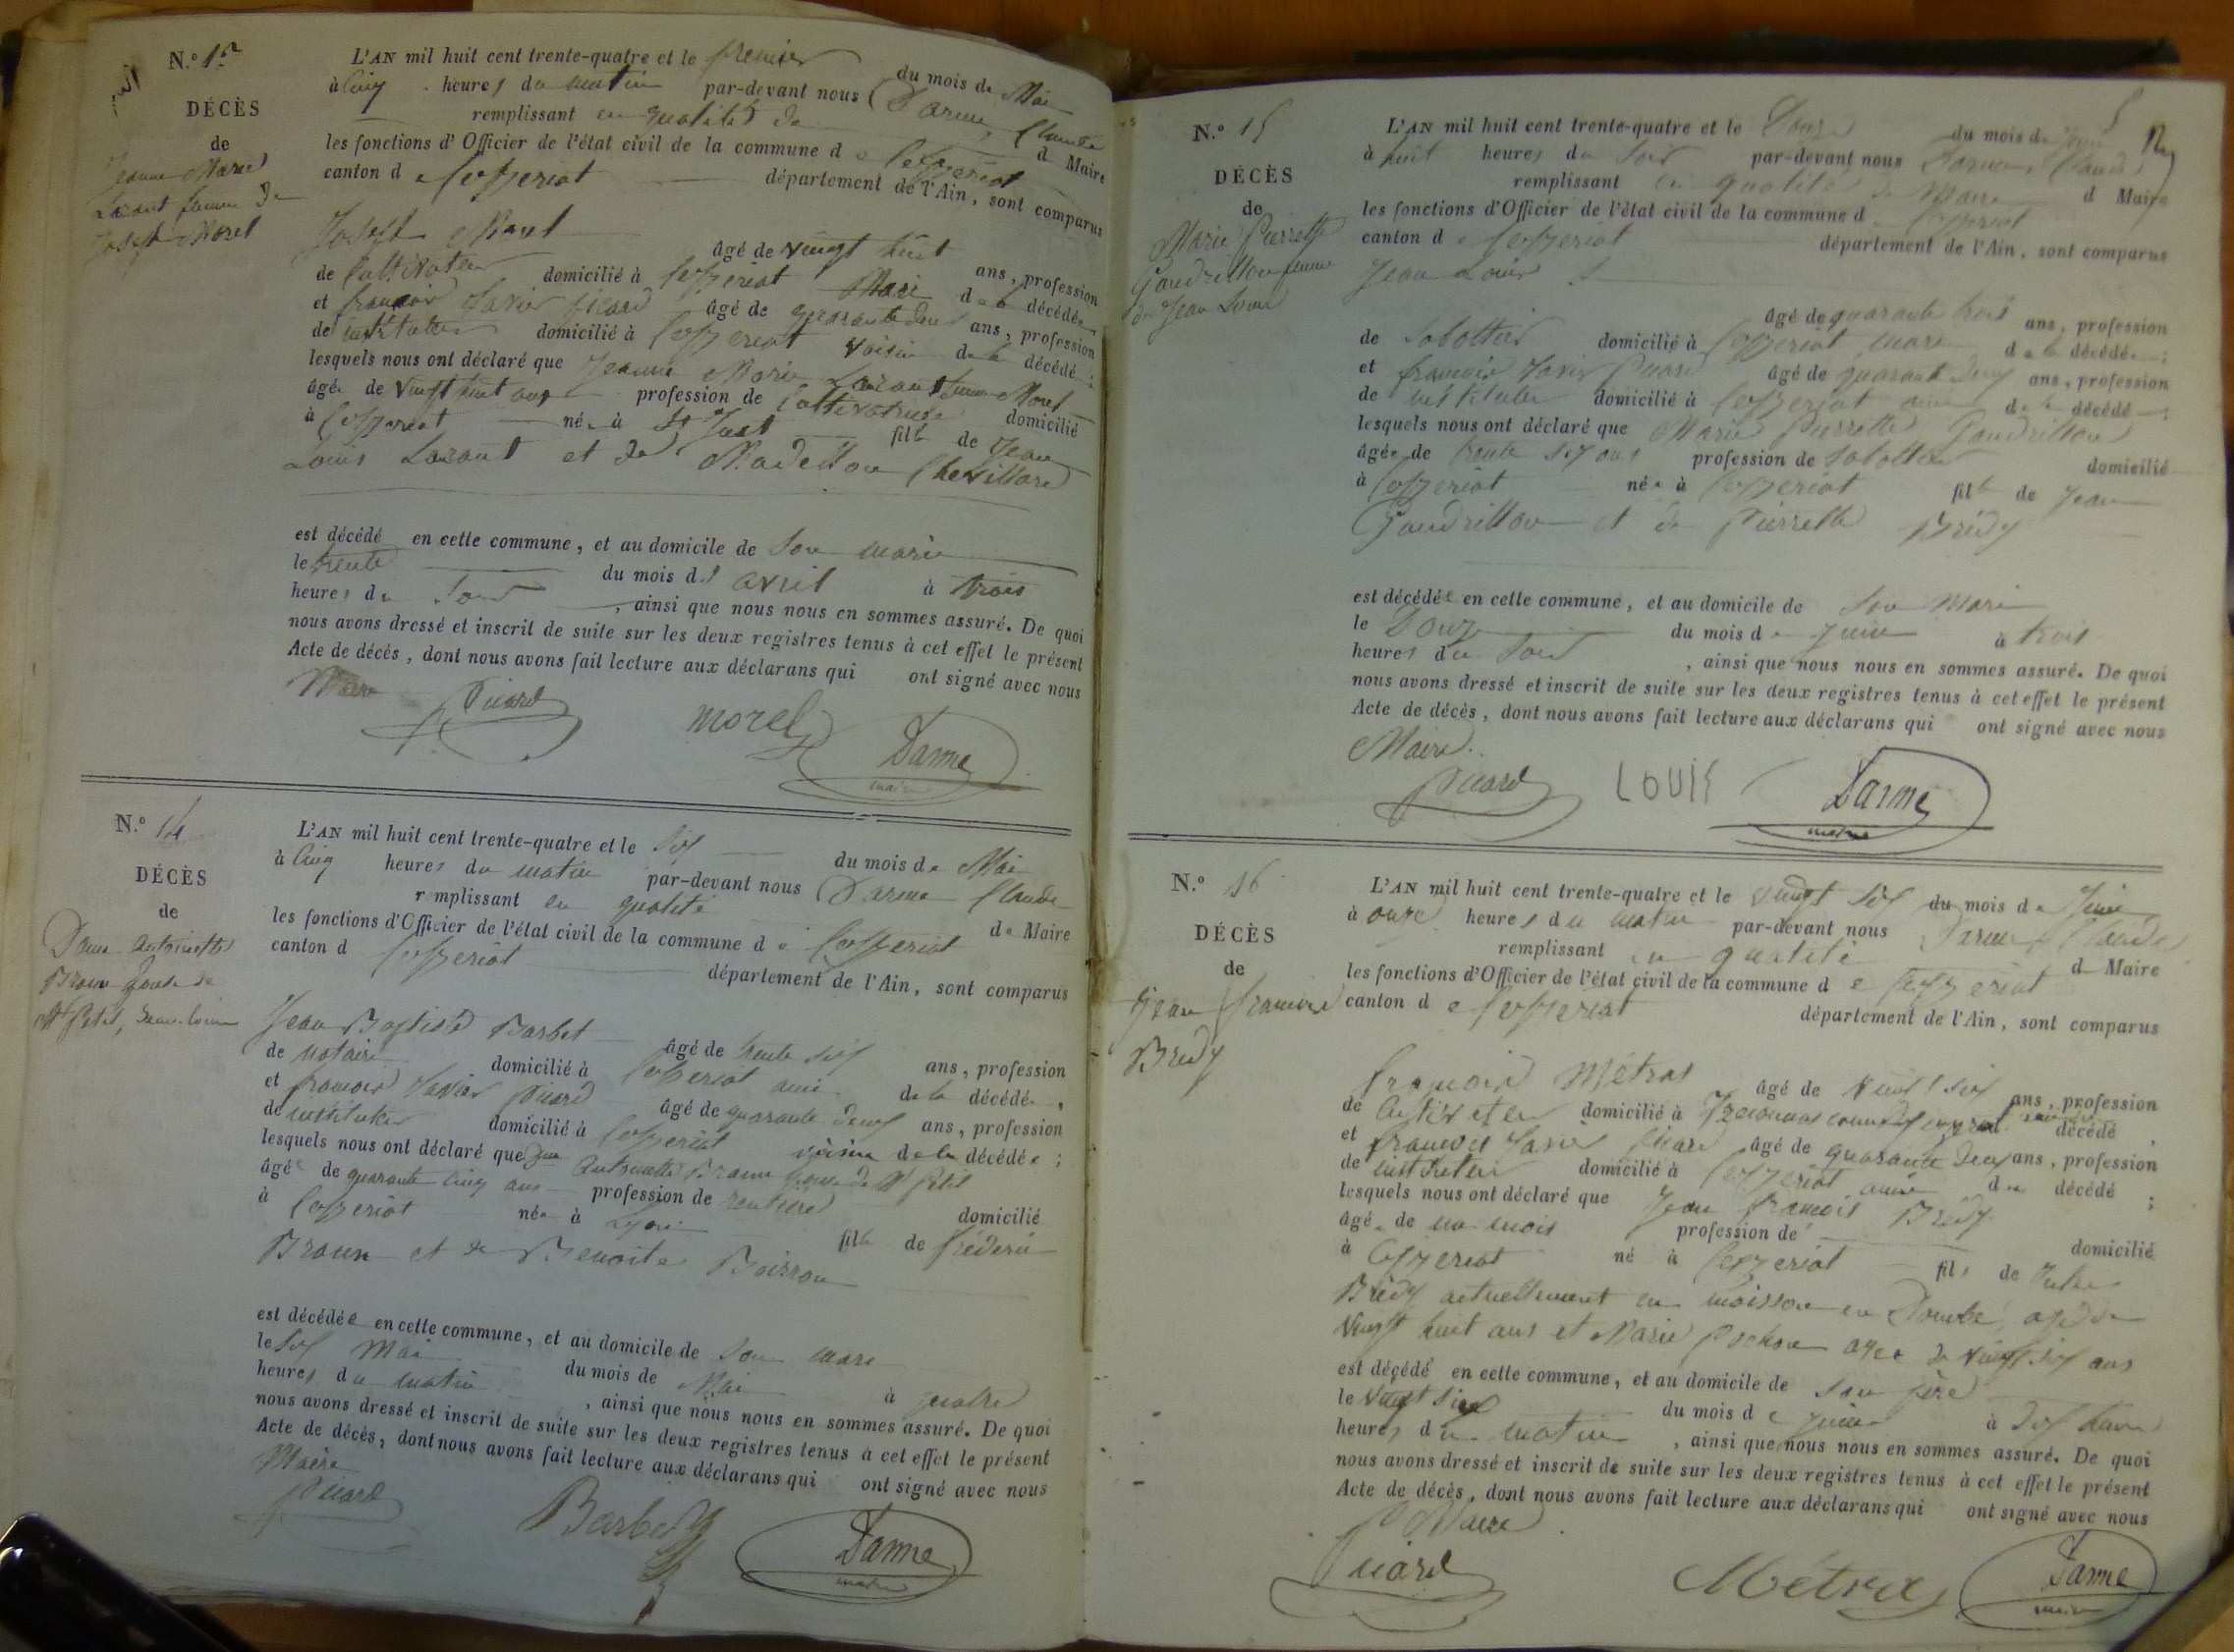 N.º 13
DÉCÈS
de
Jeanne Marie
femme de
Joseph Morel
L'AN mil huit cent trente-quatre et le premier du mois de Mai
à cinq heures du matin par-devant nous Darme, Claude
remplissant en qualité de d Maire
les fonctions d'Officier de l'état civil de la commune de Ceyzeriat
canton de Ceyzeriat département de l'Ain, sont comparus
Joseph Morel âgé de vingt huit ans, profession
de Cultivateur domicilié à Ceyzeriat Mari de la décédée
et françois Xavier Picard âgé de quarante deux ans, profession
de instituteur domicilié à Ceyzeriat voisin de la décédé ;
lesquels nous ont déclaré que Jeanne Marie femme Morel
âgée de vingt huit ans profession de Cultivatrice domicilié
à Ceyzeriat née à St Just fille de Jean
Louis et de Madellon Chevillard
est décédé en cette commune, et au domicile de son mari
le trente du mois d'avril à trois
heures du soir, ainsi que nous nous en sommes assuré. De quoi
nous avons dressé et inscrit de suite sur les deux registres tenus à cet effet le présent
Acte de décès, dont nous avons fait lecture aux déclarans qui ont signé avec nous
Maire
Picard morel Darme
maire
N.º 14
DÉCÈS
de
Dame Antoinette
Braun
Mr Petit,
L'AN mil huit cent trente-quatre et le six du mois de Mai
à cinq heures du matin par-devant nous Darme Claude
remplissant en qualité de Maire
les fonctions d'Officier de l'état civil de la commune de Ceyzeriat
canton d Ceyzeriat département de l'Ain, sont comparus
Jean Baptiste Barbet âgé de trente six ans, profession
de notaire domicilié à Ceyzeriat ami de la décédée,
et françois Xavier Picard âgé de quarante deux ans, profession
de instituteur domicilié à Ceyzeriat voisin de la décédée ;
lesquels nous ont déclaré que Dme Antoinette Braun de Mr Petit
âgée de quarante cinq ans profession de rentière domicilié
à Ceyzeriat née à Lyon fille de fréderic
Braun et de Benoite Boirron
est décédée en cette commune, et au domicile de son mari
le six Mai du mois de Mai à quatre
heures du matin, ainsi que nous nous en sommes assuré. De quoi
nous avons dressé et inscrit de suite sur les deux registres tenus à cet effet le présent
Acte de décès, dont nous avons fait lecture aux déclarans qui ont signé avec nous
Maire
Picard Barbet Darme
maire
N.º 15
DÉCÈS
de
Marie Pierrette
Gaudrillon femme
de Jean Louis
L'AN mil huit cent trente-quatre et le Douze du mois de Juin
à huit heures du soir par-devant nous Darme Claude
remplissant en qualité de Maire d Maire
les fonctions d'Officier de l'état civil de la commune d Ceyzeriat
canton de Ceyzeriat département de l'Ain, sont comparus
Jean Louis
âgé de quarante trois ans, profession
de Sabottier domicilié à Ceyzeriat mari de la décédée ;
et françois Xavier Picard âgé de quarante deux ans, profession
de instituteur domicilié à Ceyzeriat ami de la décédé ;
lesquels nous ont déclaré que Marie Pierrette Gaudrillon
âgée de trente six ans profession de Sabottier domicilié
à Ceyzeriat née à Ceyzeriat fille de Jean
Gaudrillon et de Pierrette Brédy
est décédée en cette commune, et au domicile de son Mari
le Douze du mois de Juin à trois
heures du soir, ainsi que nous nous en sommes assuré. De quoi
nous avons dressé et inscrit de suite sur les deux registres tenus à cet effet le présent
Acte de décès, dont nous avons fait lecture aux déclarans qui ont signé avec nous
Maire.
Picard LOUIS Darme
maire
N.º 16
DÉCÈS
de
Jean françois
Bredy
L'AN mil huit cent trente-quatre et le vingt six du mois de Juin
à onze heures du matin par-devant nous Darme Claude
remplissant en qualité d Maire
les fonctions d'Officier de l'état civil de la commune de Ceyzeriat
canton de Ceyzeriat département de l'Ain, sont comparus
françois Métras âgé de vingt six ans, profession
de Cultivateur domicilié à décédé,
et françois Xavier Picard âgé de quarante deux ans, profession
de instituteur domicilié à Ceyzeriat ami du décédé ;
lesquels nous ont déclaré que Jean françois Brédy
âgé de un mois profession de domicilié
à Ceyzeriat né à Ceyzeriat fils de
Brédy actuellement en moisson en Dombe, agé de
vingt huit ans et Marie Pochon agée de vingt six ans
est décédé en cette commune, et au domicile de son père
le vingt six du mois de Juin à dix heures
heures du matin, ainsi que nous nous en sommes assuré. De quoi
nous avons dressé et inscrit de suite sur les deux registres tenus à cet effet le présent
Acte de décès, dont nous avons fait lecture aux déclarans qui ont signé avec nous
Maire
Picard Métras Darme
maire